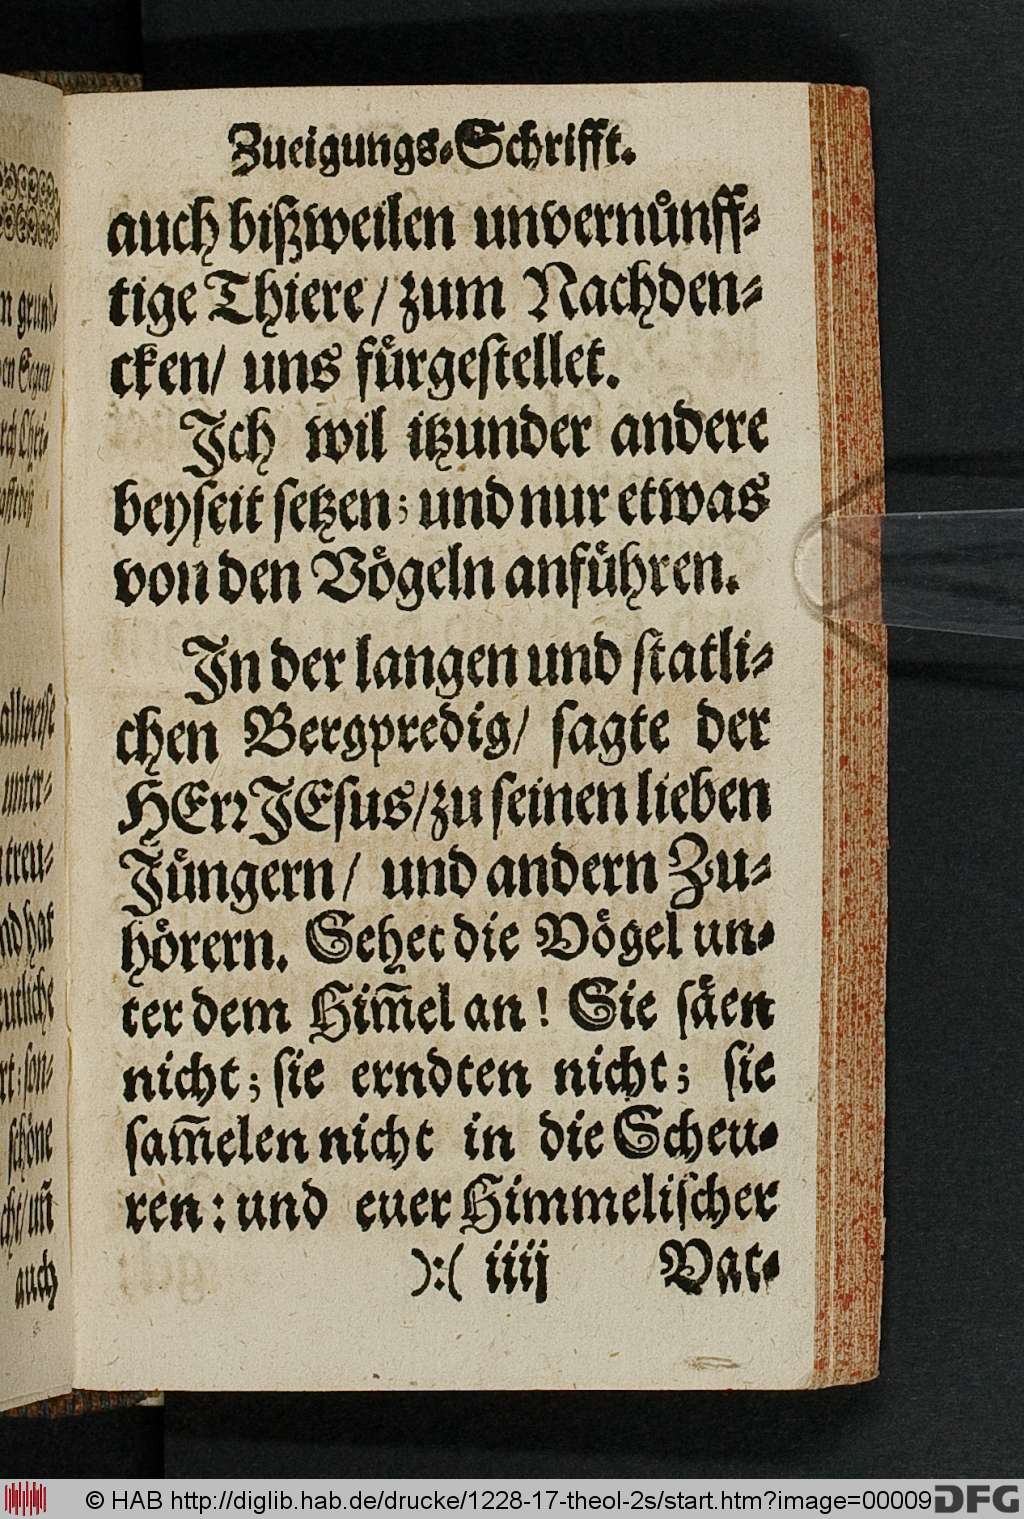 Zueigungs-Schrifft.
auch bißweilen unvernuͤnff-
tige Thiere / zum Nachden-
cken / uns fuͤrgestellet.
Ich wil itzunder andere
beyseit setzen; und nur etwas
von den Voͤgeln anfuͤhren.
In der langen und statli-
chen Bergpredig / sagte der
HErꝛ JEsus / zu seinen lieben
Juͤngern / und andern Zu-
hoͤrern. Sehet die Voͤgel un-
ter dem Him̃el an! Sie saͤen
nicht; sie erndten nicht; sie
sam̃elen nicht in die Scheu-
ren: und euer Himmelischer
):( iiij Vat-
n grund-
en Segen /
allweise
unter-
treu-
nd hat
utliche
rt; son-
schoͤne
cht / uñ
auch
© HAB http://diglib.hab.de/drucke/1228-17-theol-2s/start.htm?image=00009
DFG